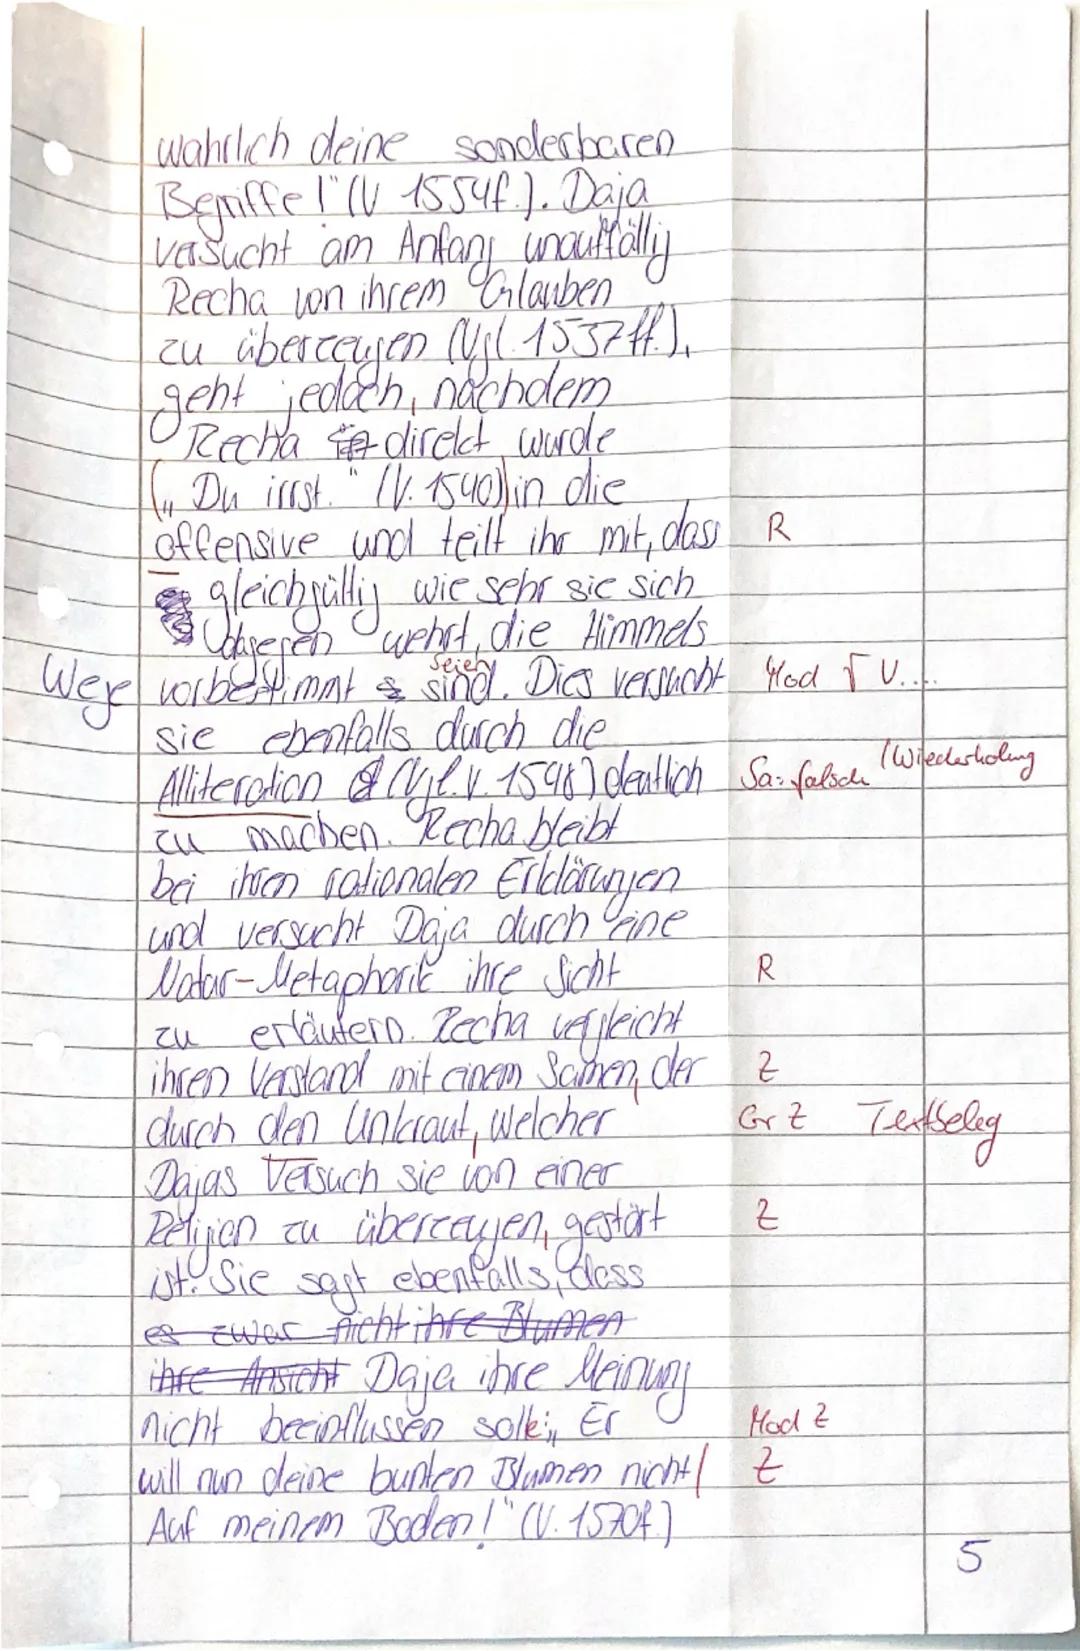 wahrlich deine sonderbaren
Begriffe!" (V 1554f.). Daja
versucht am Anfang unauffällig
Recha von ihrem Glauben
zu überzeugen (Vgl. 1537ff.),
geht jedoch, nachdem
Recha direkt wurde
(„Du irrst." (V. 1540)) in die
offensive und teilt ihr mit, dass R
gleichgültig wie sehr sie sich
dagegen wehrt, die Himmels
Wege vorbestimmt sind. seien Dies versucht Mod √ V....
sie ebenfalls durch die
Alliteration (Vgl. V. 1548) deutlich Sa: falsch (Wiederholung
zu machen. Recha bleibt
bei ihren rationalen Erklärungen
und versucht Daja durch eine
Natur-Metaphorik ihre Sicht R
zu erläutern. Recha vergleicht
ihren Verstand mit einem Samen, der Z
durch den Unkraut, welcher Gr Z Textbeleg
Dajas Versuch sie von einer
Religion zu überzeugen, gestört Z
ist. Sie sagt ebenfalls, dass
es zwar nicht ihre Blumen
ihre Ansicht Daja ihre Meinung
nicht beeinflussen solle: „Er Mod Z
will nun deine bunten Blumen nicht/ Z
Auf meinem Boden!" (V. 1570f.)
5